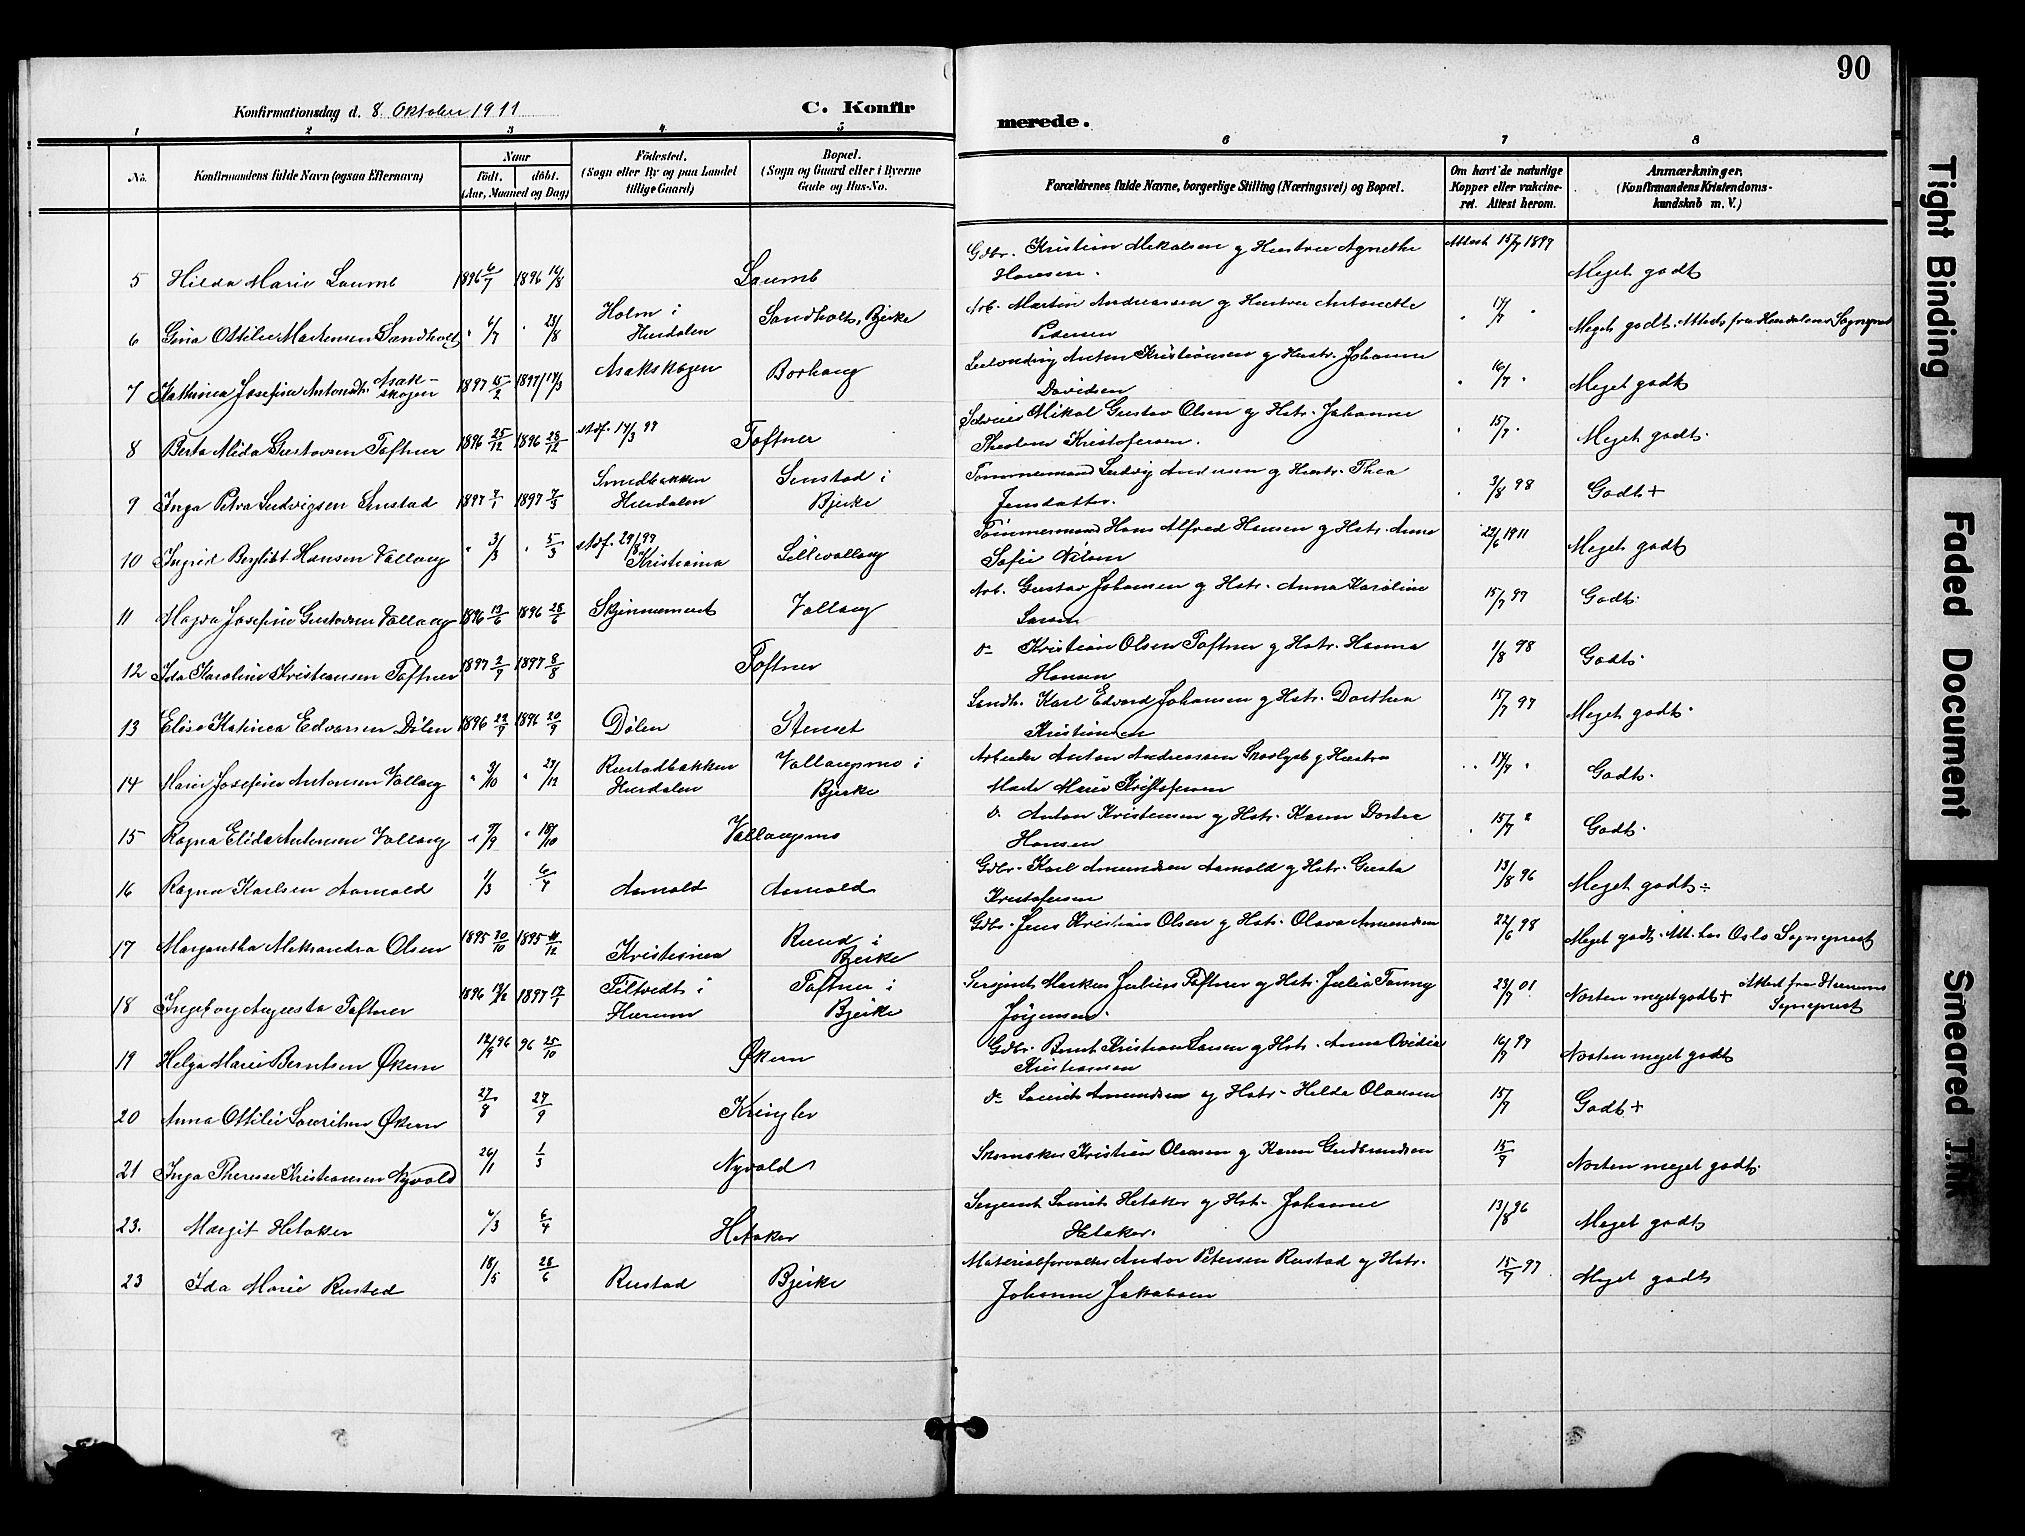 90
Konfirmationsdag d. 8. Oktober 1911
C. Konfir
merede.
1 2 3 4 5 6 7 8
No.
Konfirmandens fulde Navn (ogsaa Efternavn)
Naar
födt. döbt.
(Aar, Maaned og Dag)
Födested.
(Sogn eller By og paa Landet
tillige Gaard)
Bopæl.
(Sogn og Gaard eller i Byerne
Gade og Hus-No.
Forældrenes fulde Navne, borgerlige Stilling (Næringsvei) og Bopæl.
Om havt de naturlige
Kopper eller vakcine-
ret. Attest herom.
Anmærkninger,
(Konfirmandens Kristendoms-
kundskab m. V.)
5 Hilda Marie Laumb 1896 6/7 1896 16/8 Laumb Gdbr. Kristian Mikalsen og Hustru Agnethe Attest 15/7 1897
Hansen. Meget godt
6 Gina Ottilie Martinsen Sandholt " 6/7 " 23/8 Holm i Sandholt, Bjerke Arb. Martin Andreassen og Hustru Antonette " 17/7 "
Hurdalen Pedersen Meget godt. Attest fra Hurdalens Sogneprest
7 Kathinca Josefine Antonsdtr. Asak-
skogen 1897 15/2 1897 17/3 Asakskogen Borhaug Leilending Anton Kristiansen og Hustr. Johanne " 16/7 "
Davidsen Meget godt
8 Berta Alida Gustavsen Toftner 1896 25/12 1896 28/12 stdf. 14/3 97 Toftner Selveier Mikal Gustav Olsen og Hstr. Johanne " 15/7 "
Theoline Kristofersen. Meget godt.
9 Inga Petra Ludvigsen Smstad 1897 7/1 1897 7/3 Smedbakken Smstad i Tømmermand Ludvig Andersen og Hustr. Thea " 3/8 98
Hurdalen Bjerke Jensdatter. Godt +
10 Ingrid Bergliot Hansen Vallaug " 3/3 " 5/3 stdf. 29/8 97 Tømmermand Hans Alfred Hansen og Hstr. Anna 29/6 1911
Kristiania Lillevallaug Sofie Nilsen Meget godt
11 Magda Josefine Gustavsen Vallaug 1896 13/6 1896 28/6 Skjennumeret Vallaug Arb. Gustav Johansen og Hstr. Anna Karoline 15/7 97
Larsen Godt.
12 Ida Karoline Kristiansen Toftner 1897 2/7 1897 8/8 Toftner do Kristian Olsen Toftner og Hstr. Hanna 1/8 98
Hansen Godt.
13 Elise Katinca Edvarsen Dølen 1896 22/7 1896 20/9 Dølen Stenset Landh. Karl Edvard Johansen og Hstr. Dorthea 15/7 97
Kristiansen Meget godt.
14 Marie Josefine Antonsen Vallaug " 3/10 " 27/12 Rustadbakken Vallaugsmo i Arbeider Anton Andreassen Skovlyst og Hustru " 14/7 "
Hurdalen Bjerke Marte Marie Kristofersen Godt.
15 Ragna Elida Antonsen Vallaug " 9/9 " 18/10 Vallaugsmo do Anton Kristensen og Hstr. Karen Dortea " 15/7 "
Hansen Godt.
16 Ragna Karlsen Asmold 1/3 6/4 Asmold Asmold Gdbr. Karl Amundsen Asmold og Hstr. Gusta 13/8 96
Kristofersen Meget godt ÷
17 Margaretha Aleksandra Olsen 1895 20/10 1895 11/12 Kristiania Ruud i Gdbr. Jens Kristian Olsen og Hstr. Olava Amundsen 22/6 98
Bjerke Meget godt. Att. har Oslo Sogneprest
18 Ingeborg Augusta Toftner 1896 13/12 1897 17/1 Filtvedt i Toftner i Sergent Markus Julius Toftner og Hstr. Julia Fanny 23/7 01 Attest fra Hurums
Hurum Bjerke Jørgensen. Norten meget godt + Sogneprest
19 Helga Marie Berntsen Økern 12/9 96 96 25/10 Økern Gdbr. Bernt Kristian Larsen og Hstr. Anna Ovidia 16/7 97
Kristiansen Norten meget godt
20 Anna Ottilie Lauritsen Økern 27/8 27/9 Kringler do Laurits Amundsen og Hstr. Helda Olausen 15/7 Godt +
21 Inga Therese Kristiansen Nyvold 26/1 1/3 Nyvold Skomaker Kristian Olausen og Karen Gudbrandsen 15/7 Norten meget godt.
23. Margit Hetaker 6/3 6/4 Hetaker Sergeant Laurits Hetaker og Hst. Johanne 13/8 96
Hetaker. Meget godt
23 Ida Marie Rustad 18/5 28/6 Rustad Bjerke Materialforvalter Andor Petersen Rustad og Hstr. 15/7 97
Johanne Jakobsen Meget godt
Tight Binding
Faded Document
Smeared Ink